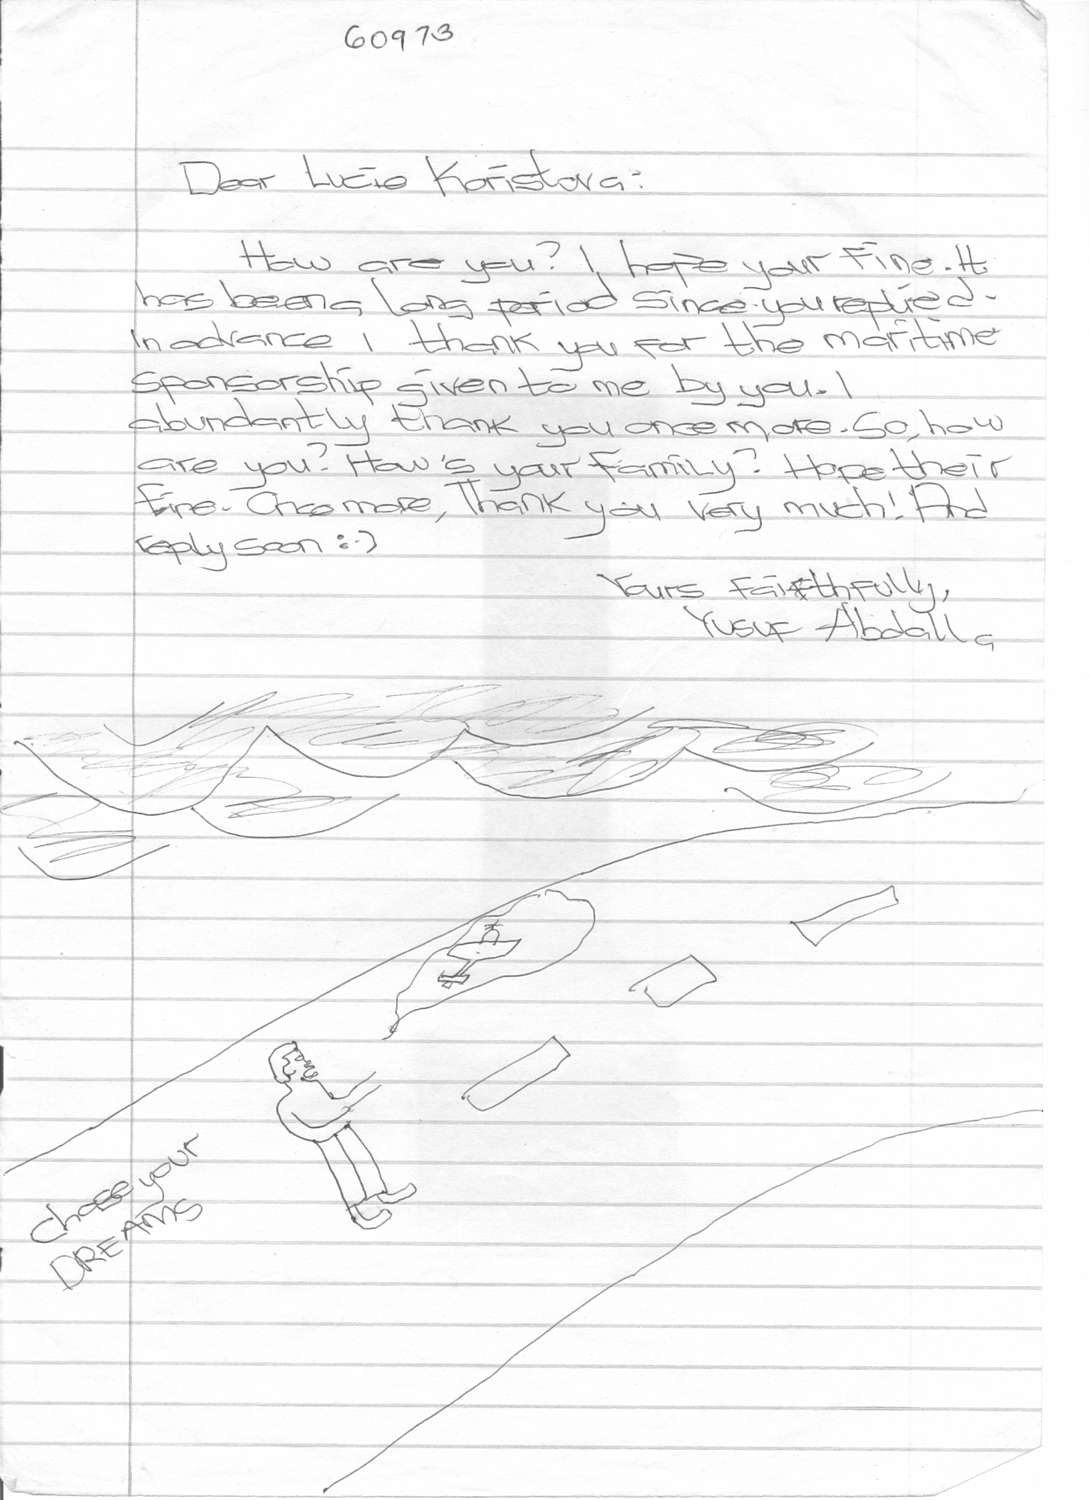 60973
Dear Lucie Koristova:
How are you? I hope your Fine. It
has been a long period since you replied.
In advance I thank you for the maritime
sponsorship given to me by you. I
abundantly thank you once more. So, how
are you? How's your Family? Hope their
fine. Once more, Thank you very much! And
reply soon :-)
Yours Faithfully,
Yusuf Abdalla
Chase your
DREAMS